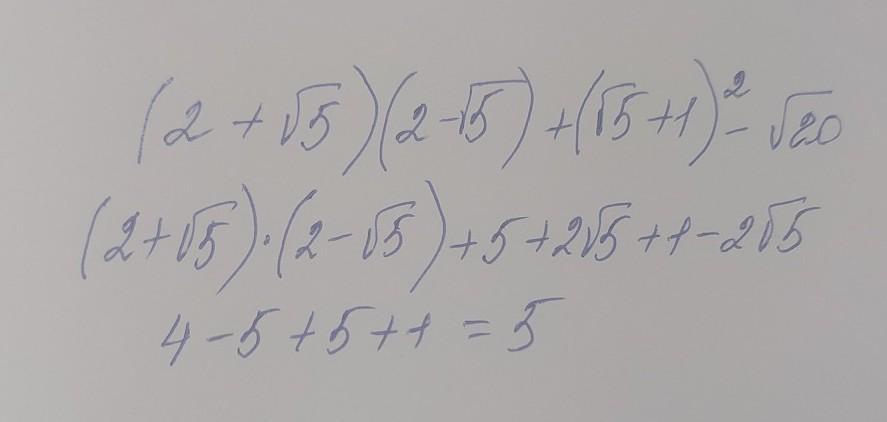 (2 + √5)(2 - √5) + (√5 + 1)² - √20
(2 + √5) · (2 - √5) + 5 + 2√5 + 1 - 2√5
4 - 5 + 5 + 1 = 5